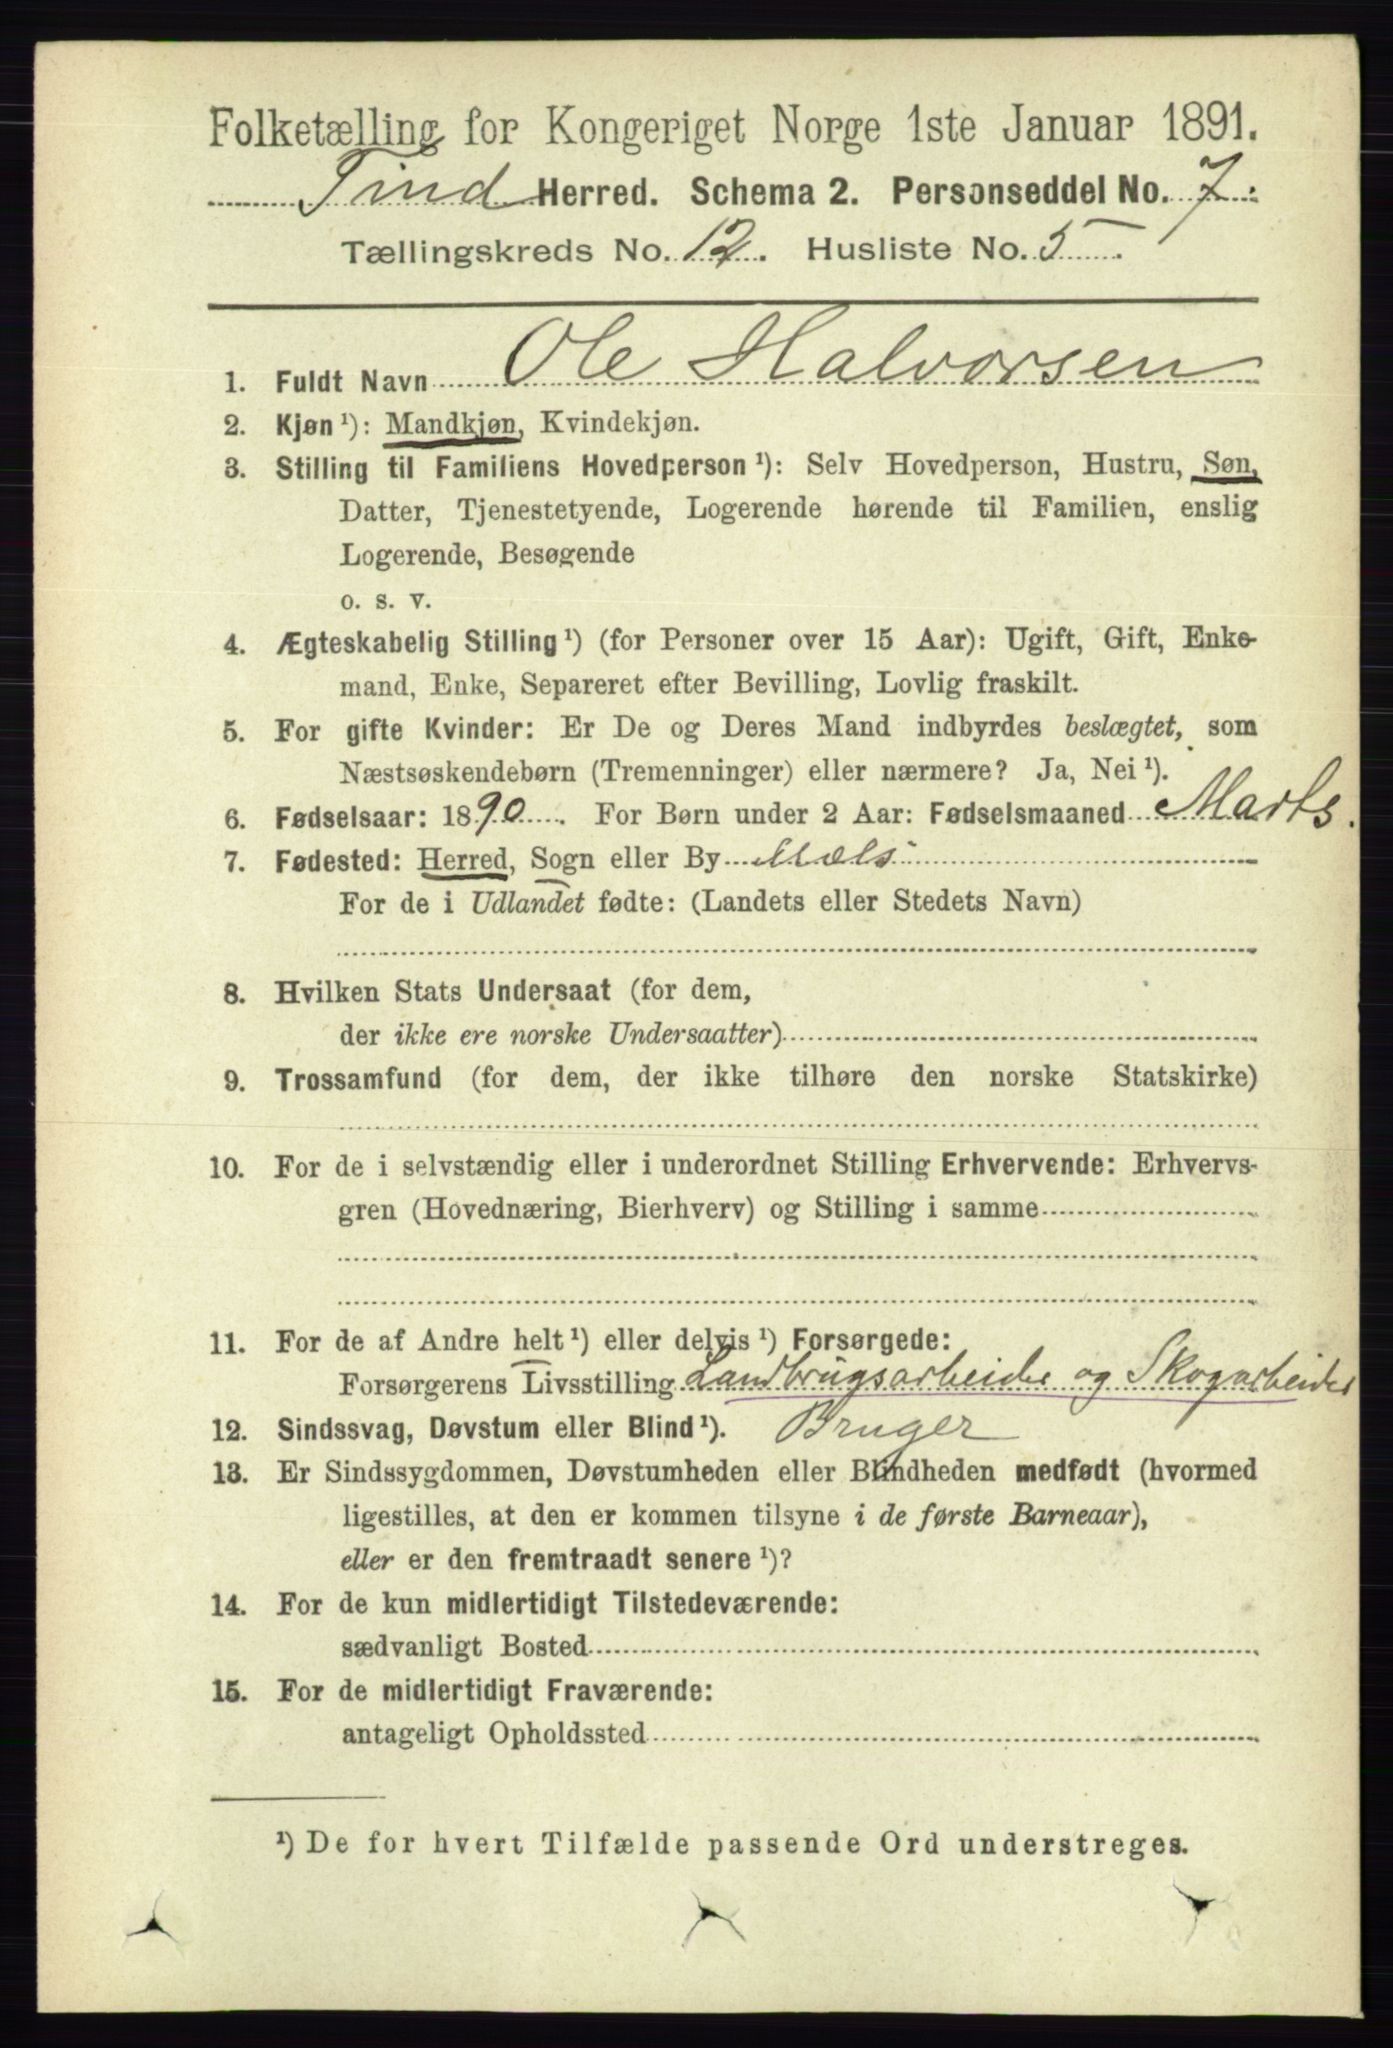 Folketælling for Kongeriget Norge 1ste Januar 1891.
Tind Herred. Schema 2. Personseddel No. 7.
Tællingskreds No. 12. Husliste No. 5
1. Fuldt Navn Ole Halvorsen
2. Kjøn ¹): Mandkjøn, Kvindekjøn.
3. Stilling til Familiens Hovedperson ¹): Selv Hovedperson, Hustru, Søn,
Datter, Tjenestetyende, Logerende hørende til Familien, enslig
Logerende, Besøgende
o. s. v.
4. Ægteskabelig Stilling ¹) (for Personer over 15 Aar): Ugift, Gift, Enke-
mand, Enke, Separeret efter Bevilling, Lovlig fraskilt.
5. For gifte Kvinder: Er De og Deres Mand indbyrdes beslægtet, som
Næstsøskendebørn (Tremenninger) eller nærmere? Ja, Nei ¹).
6. Fødselsaar: 1890. For Børn under 2 Aar: Fødselsmaaned Marts.
7. Fødested: Herred, Sogn eller By Mæls
For de i Udlandet fødte: (Landets eller Stedets Navn)
8. Hvilken Stats Undersaat (for dem,
der ikke ere norske Undersaatter)
9. Trossamfund (for dem, der ikke tilhøre den norske Statskirke)
10. For de i selvstændig eller i underordnet Stilling Erhvervende: Erhvervs-
gren (Hovednæring, Bierhverv) og Stilling i samme
11. For de af Andre helt ¹) eller delvis ¹) Forsørgede:
Forsørgerens Livsstilling Landbrugsarbeider og Skogarbeider
12. Sindssvag, Døvstum eller Blind ¹). Bruger
13. Er Sindssygdommen, Døvstumheden eller Blindheden medfødt (hvormed
ligestilles, at den er kommen tilsyne i de første Barneaar),
eller er den fremtraadt senere ¹)?
14. For de kun midlertidigt Tilstedeværende:
sædvanligt Bosted
15. For de midlertidigt Fraværende:
antageligt Opholdssted
¹) De for hvert Tilfælde passende Ord understreges.